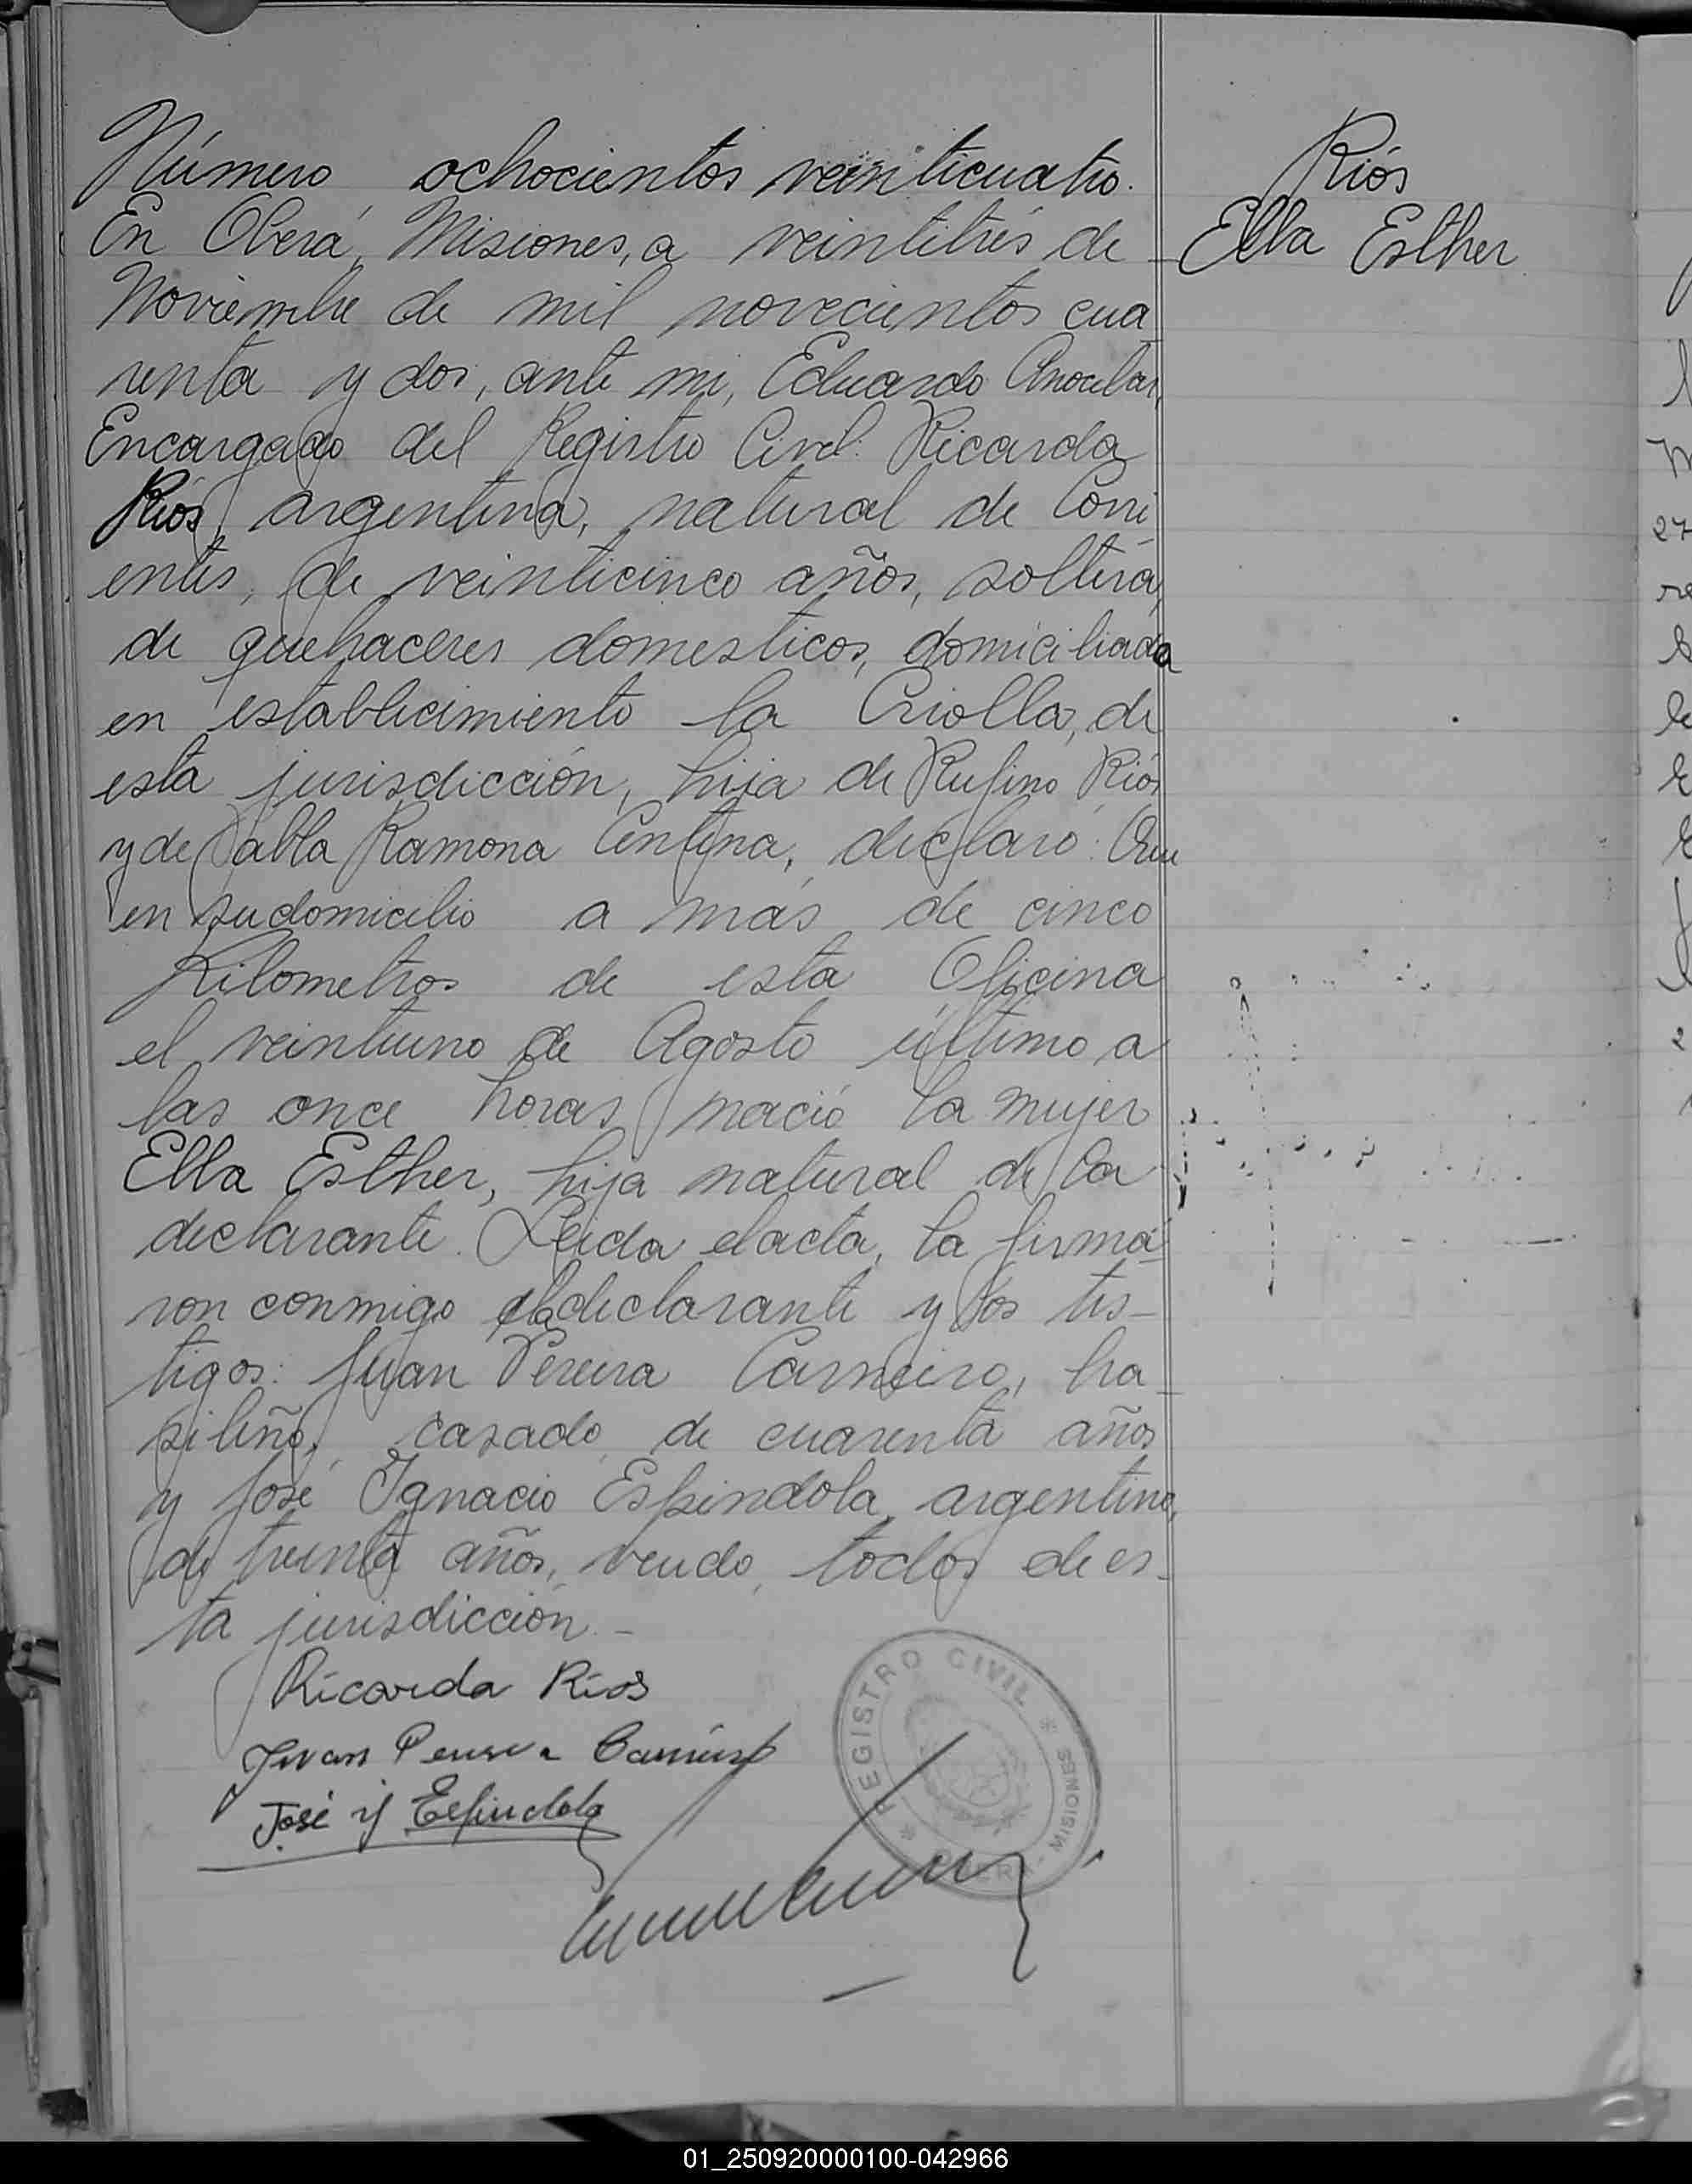 Número ochocientos veinticuatro.
En Oberá, Misiones, a veintitrés de
Noviembre de mil novecientos cua
renta y dos, ante mi, Eduardo
Encargado del Registro Civil: Ricarda
Ríos, argentina, natural de Corri
entes, de veinticinco años, soltera,
de quehaceres domesticos, domiciliada
en establecimiento la Criolla, de
esta jurisdicción, hija de Rufino Ríos
y de Pabla Ramona, declaró: Que
en su domicilio a más de cinco
Kilometros de esta Oficina
el veintiuno de Agosto último a
las once horas nació la mujer
Ella Esther, hija natural de la
declarante. Leida el acta, la firma
ron conmigo la declarante y los tes-
tigos: Juan Pereira Carneiro, bra
sileño, casado, de cuarenta años
y José Ignacio Espindola, argentino,
de treinta años, viudo, todos de es-
ta jurisdicción.-
Ricarda Ríos
Juan Pereira Carneiro
José Y Espindola
REGISTRO CIVIL * MISIONES - OBERA *
Ríos
Ella Esther
27
2
01_250920000100-042966